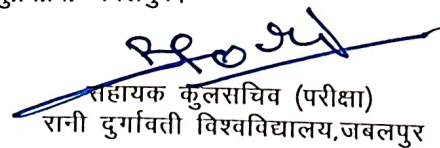 सहायक कुलसचिव (परीक्षा)
रानी दुर्गावती विश्वविद्यालय,जबलपुर